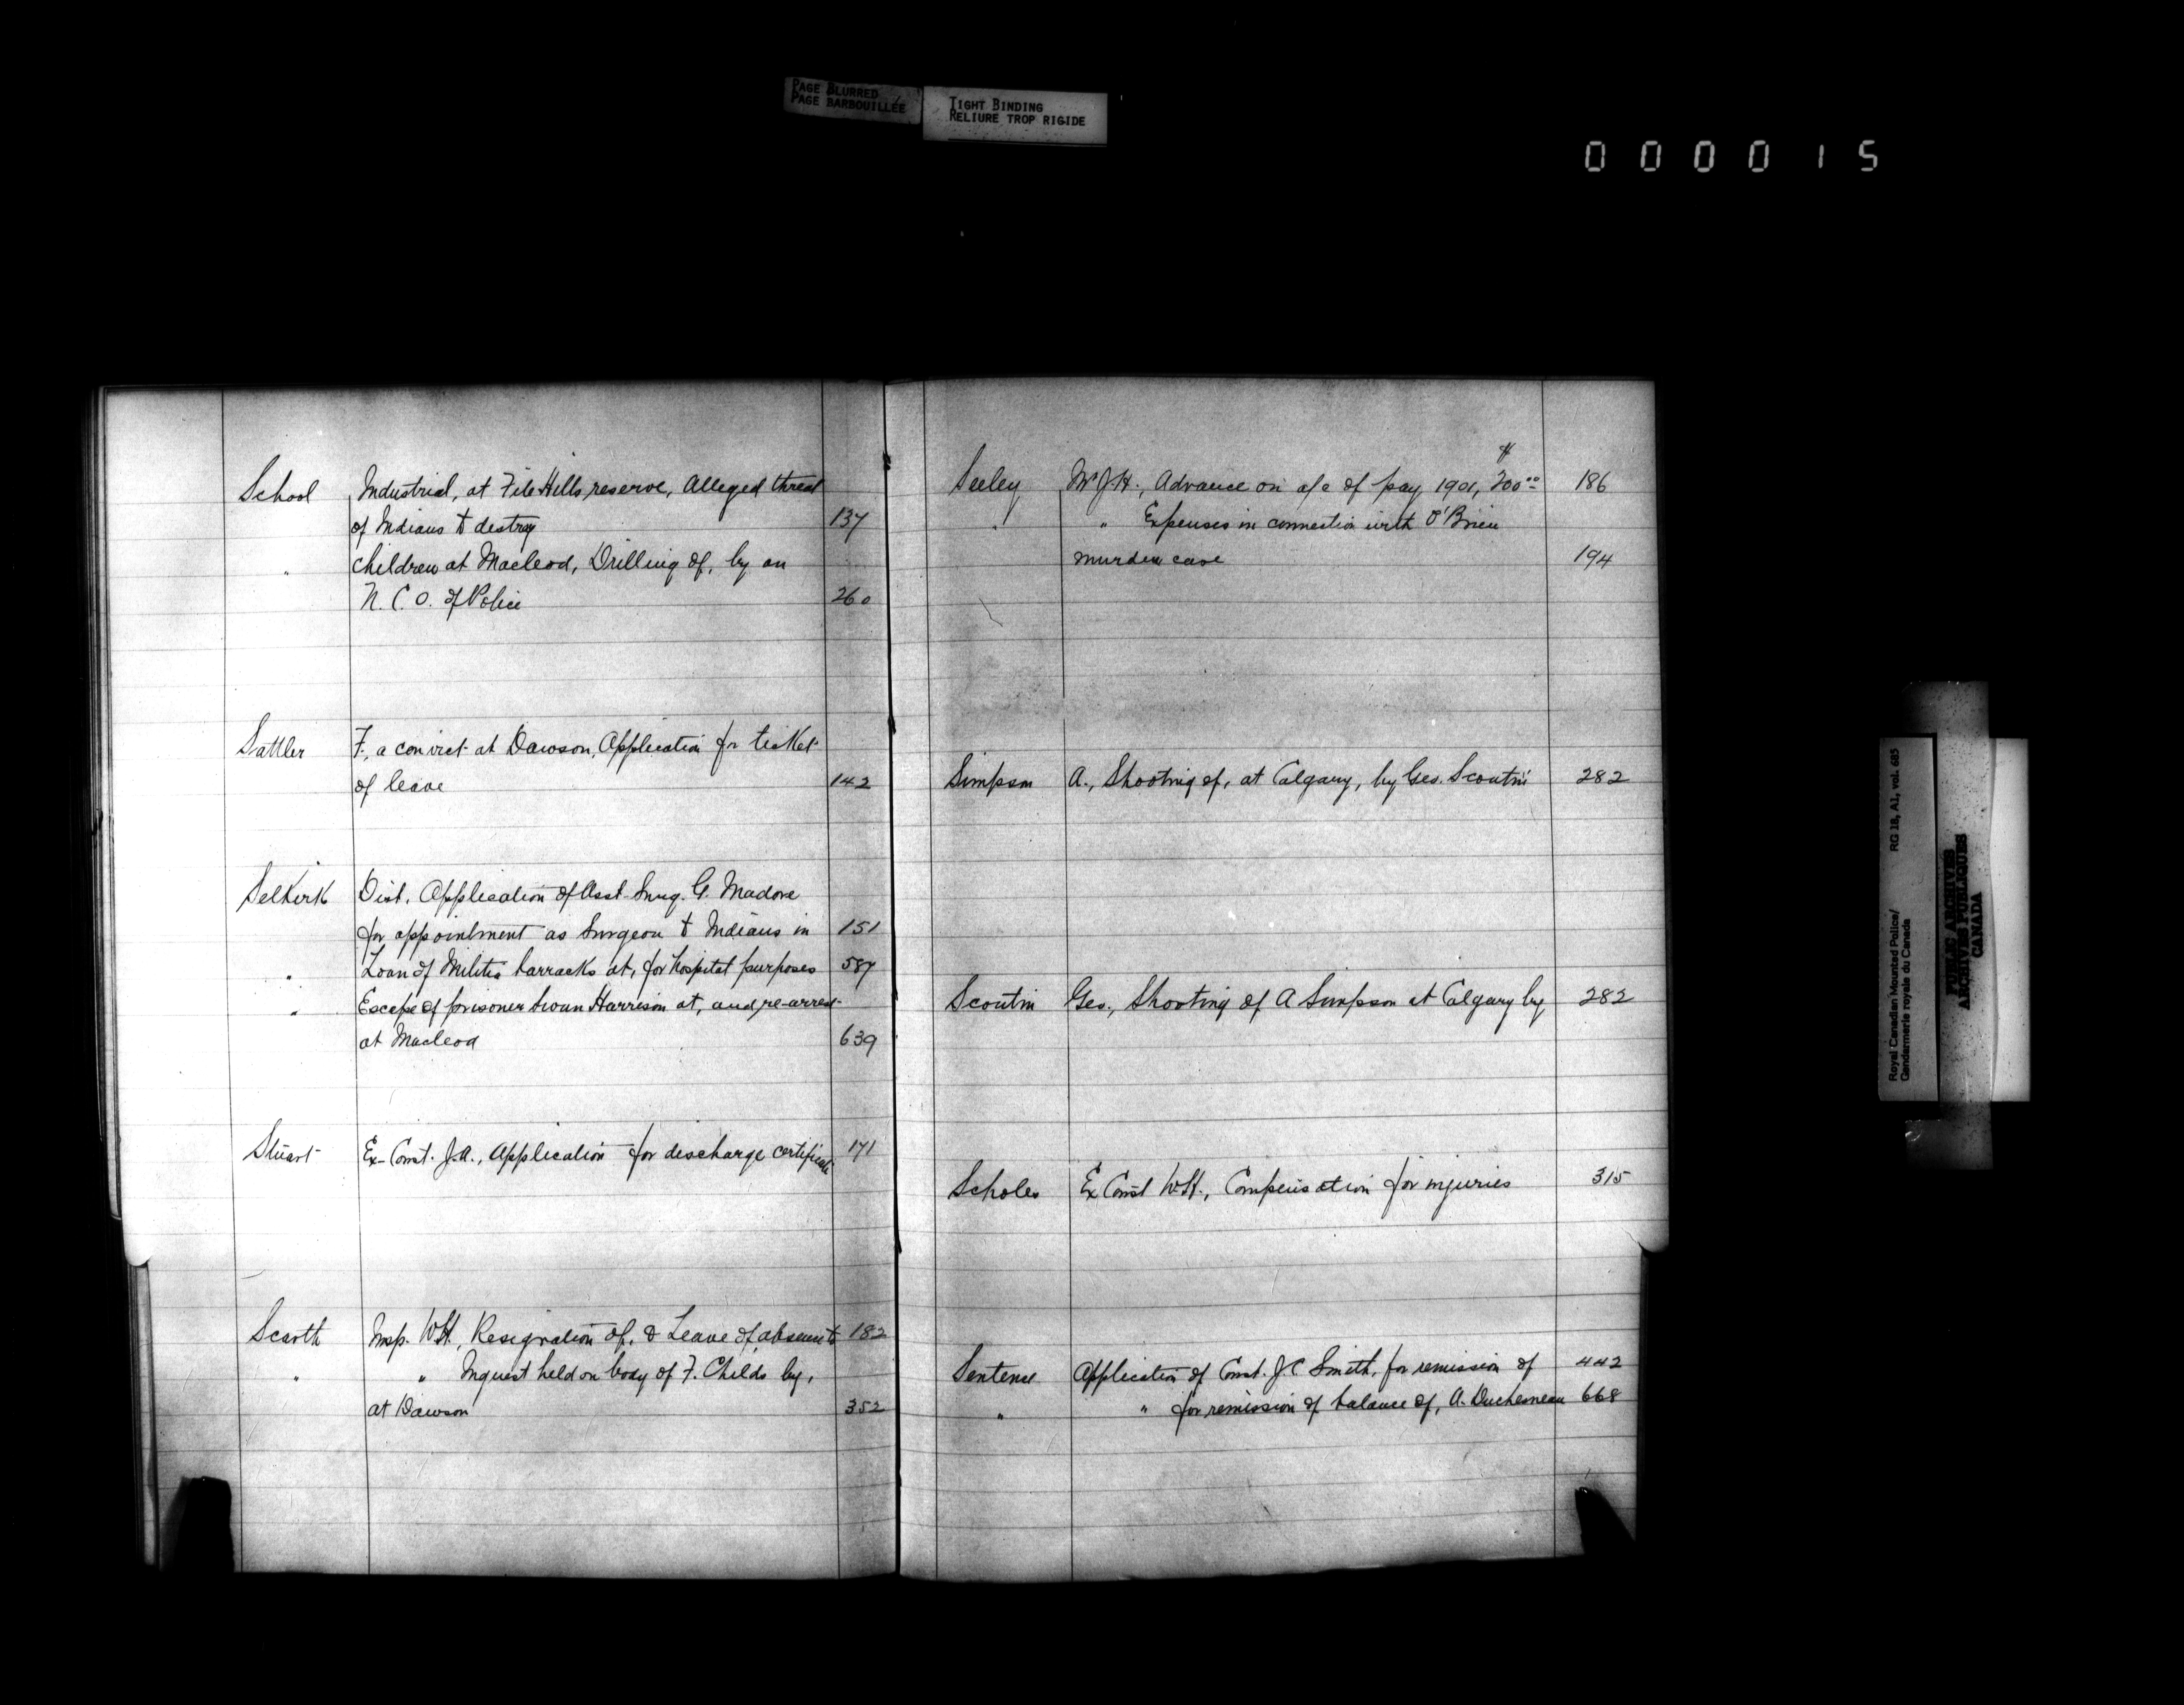 PAGE BLURRED
PAGE BARBOUILLÉE
TIGHT BINDING
RELIURE TROP RIGIDE
000015
School Industrial, at File Hills reserve, Alleged threat
of Indians to destroy 137
" Children at Macleod, Drilling of, by an
N.C.O. of Police 260
Sattler F., a convict at Dawson, Application for ticket
of leave 142
Selkirk Dist. Application of Asst. Surg. G. Madore
for appointment as Surgeon to Indians in 151
" Loan of Militia barracks at, for hospital purposes 587
" Escape of prisoner Swan Harrison at, and re-arrest
at Macleod 639
Stuart Ex-Const. J.A., Application for discharge certificate 171
Scarth Insp. W.H., Resignation of, & Leave of absence to 182
" " Inquest held on body of F. Childs by,
at Dawson 352
Seeley Mr J.H., Advance on a/c of pay 1901, $200.00 186
" " Expenses in connection with O'Brien
murder case 194
Simpson A., Shooting of, at Calgary, by Geo. Scoutin 282
Scoutin Geo., Shooting of A Simpson at Calgary by 282
Scholes Ex Const W.H., Compensation for injuries 315
Sentence Application of Const. J C Smith, for remission of 442
" " for remission of balance of, A. Duchesneau 668
Royal Canadian Mounted Police/ RG 18, A1, vol. 685
Gendarmerie royale du Canada
PUBLIC ARCHIVES
ARCHIVES PUBLIQUES
CANADA